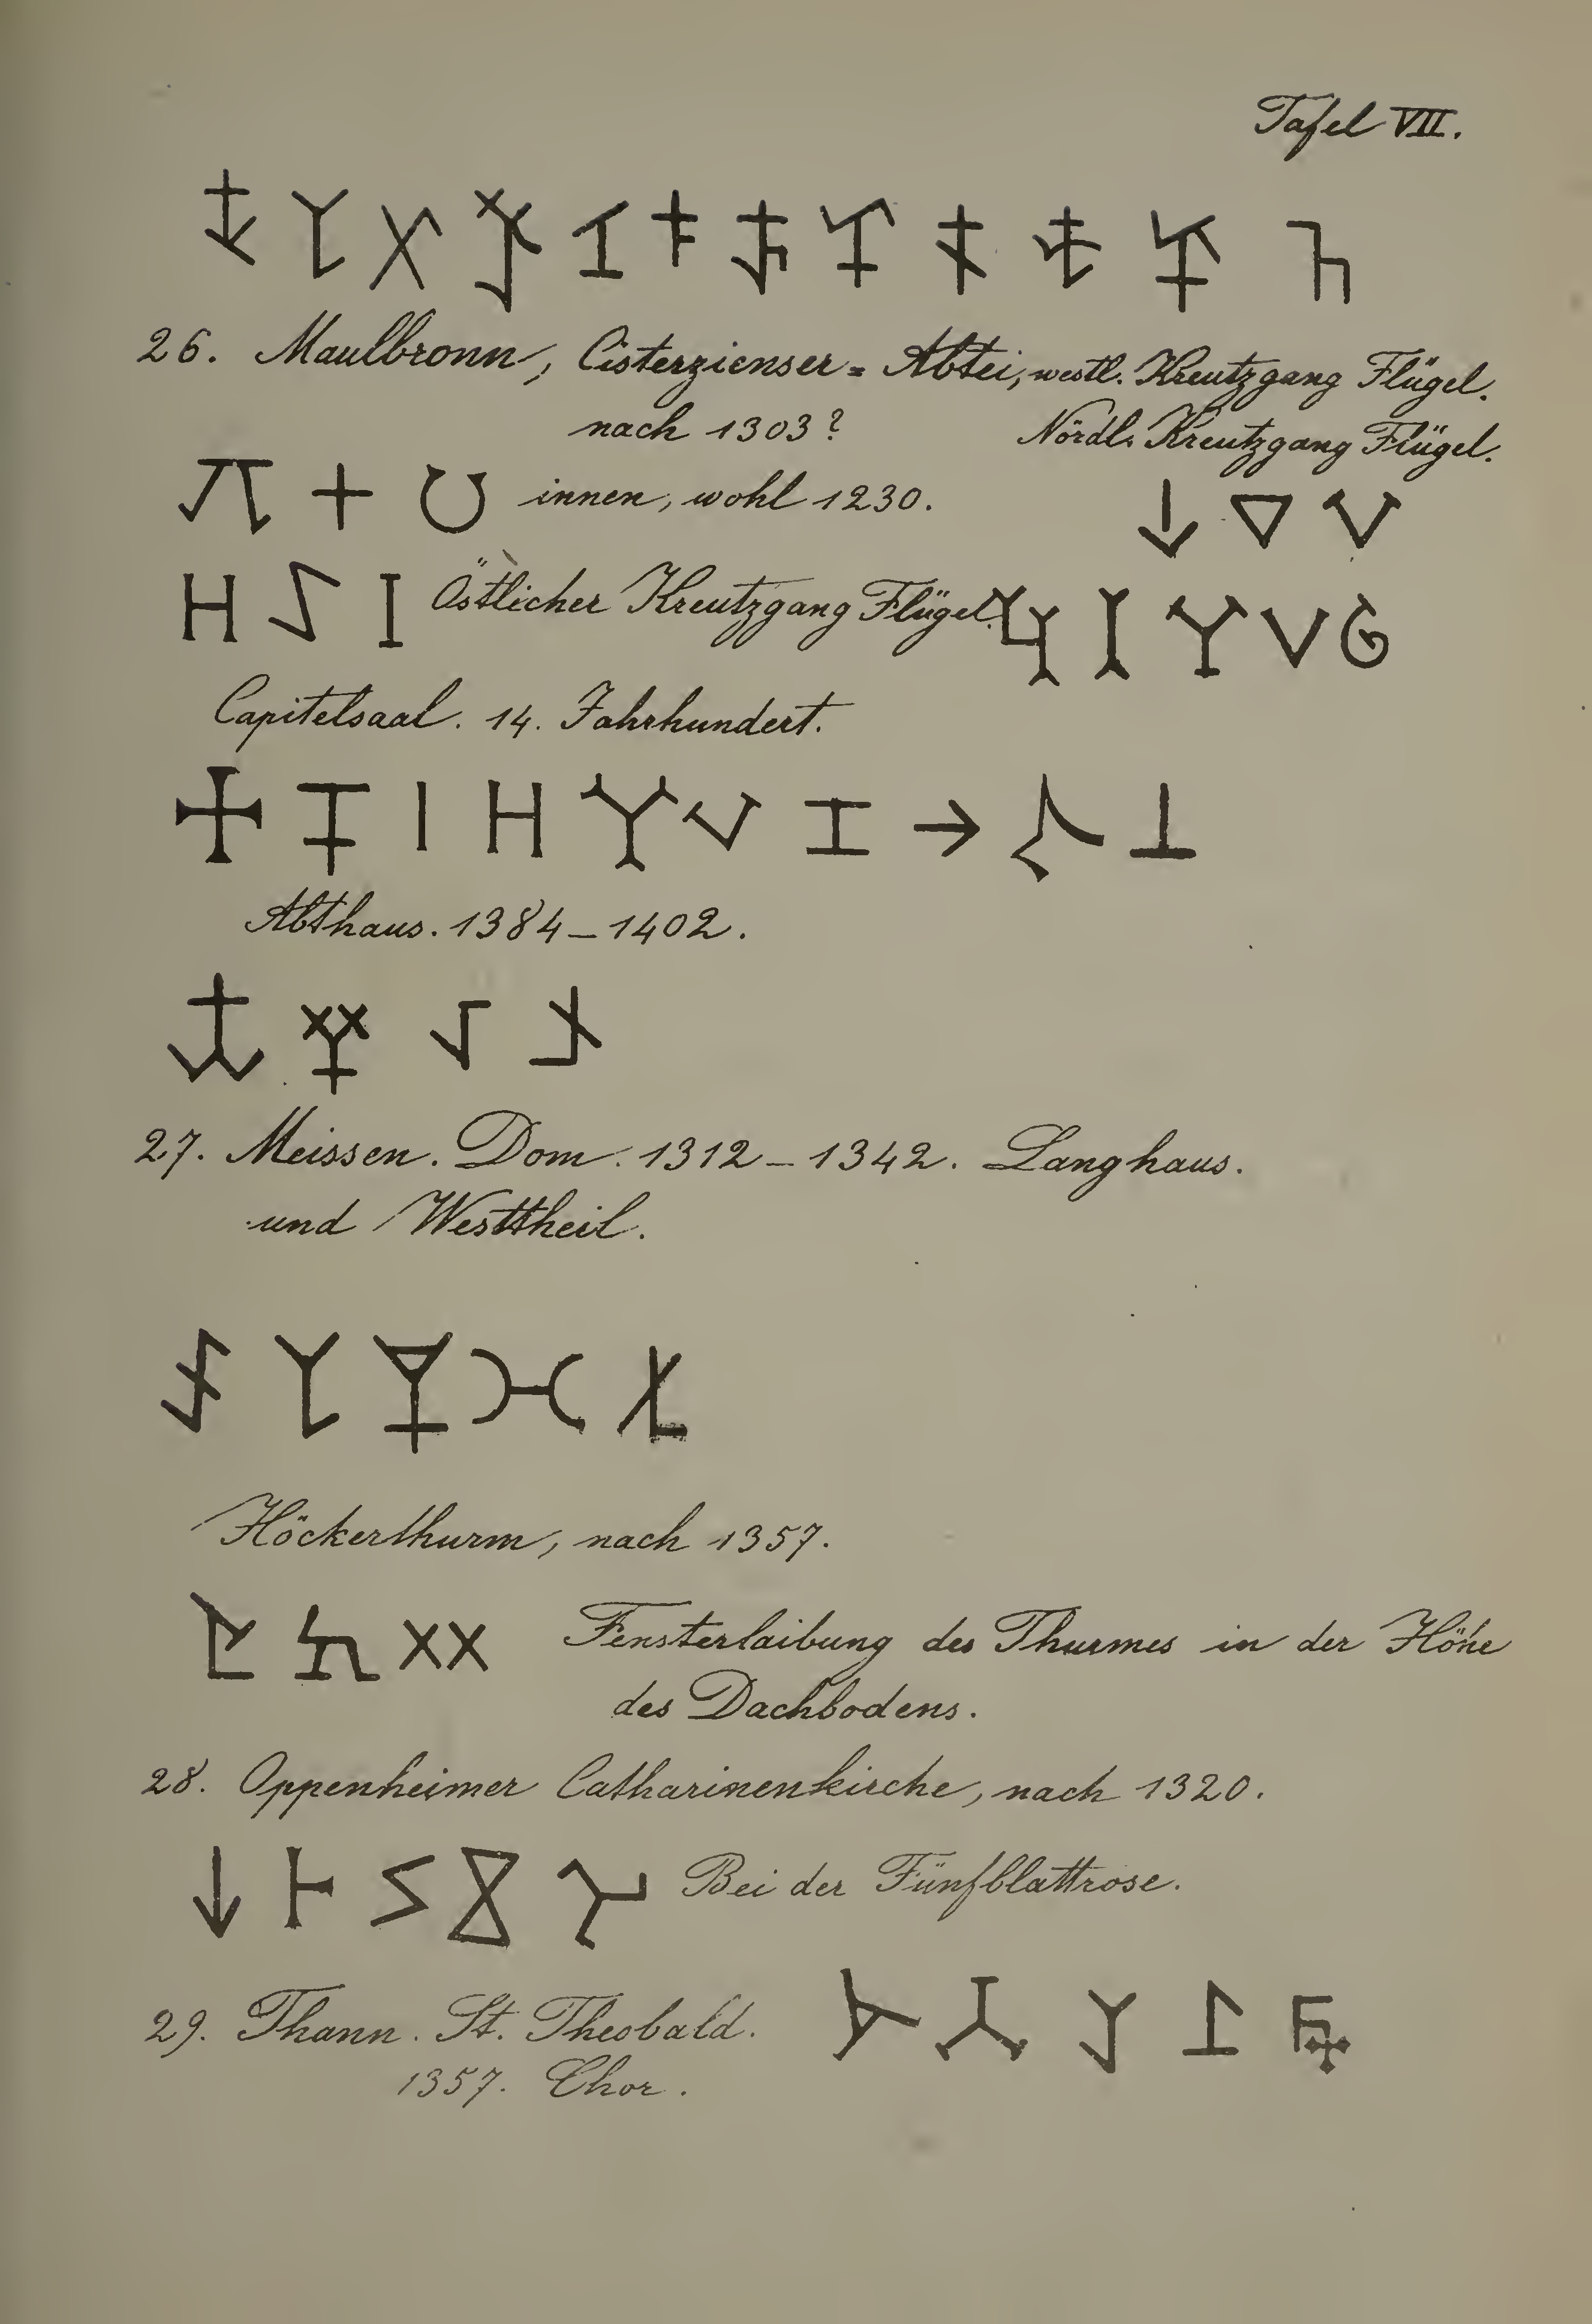 Tafel VII.
26. Maulbronn, Cisterzienser = Abtei, westl. Kreutzgang Flügel.
nach 1303? Nördl. Kreutzgang Flügel.
innen, wohl 1230.
Östlicher Kreutzgang Flügel.
Capitelsaal. 14. Jahrhundert.
Abthaus. 1384–1402.
27. Meissen. Dom. 1312–1342. Langhaus.
und Westtheil.
Höckerthurm, nach 1357.
Fensterlaibung des Thurmes in der Höhe
des Dachbodens.
28. Oppenheimer Catharinenkirche, nach 1320.
Bei der Fünfblattrose.
29. Thann. St. Theobald.
1357. Chor.